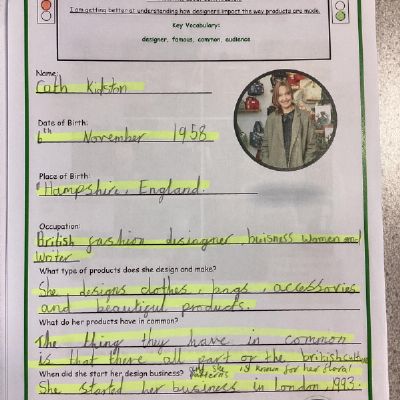 I am getting better at understanding how designers impact the way products are made.
Key Vocabulary:
designer, famous, common, audience
Name:
Cath Kidston
Date of Birth:
6th November 1958
Place of Birth:
Hampshire, England.
Occupation:
British fashion disingner buisness women and
writer
What type of products does she design and make?
She designs clothes, bags, accessories
and beautiful products.
What do her products have in common?
The thing they have in common
is that there all part or the british culture
When did she start her design business?
she is known for her floral
patterns
She started her business in London, 1993.